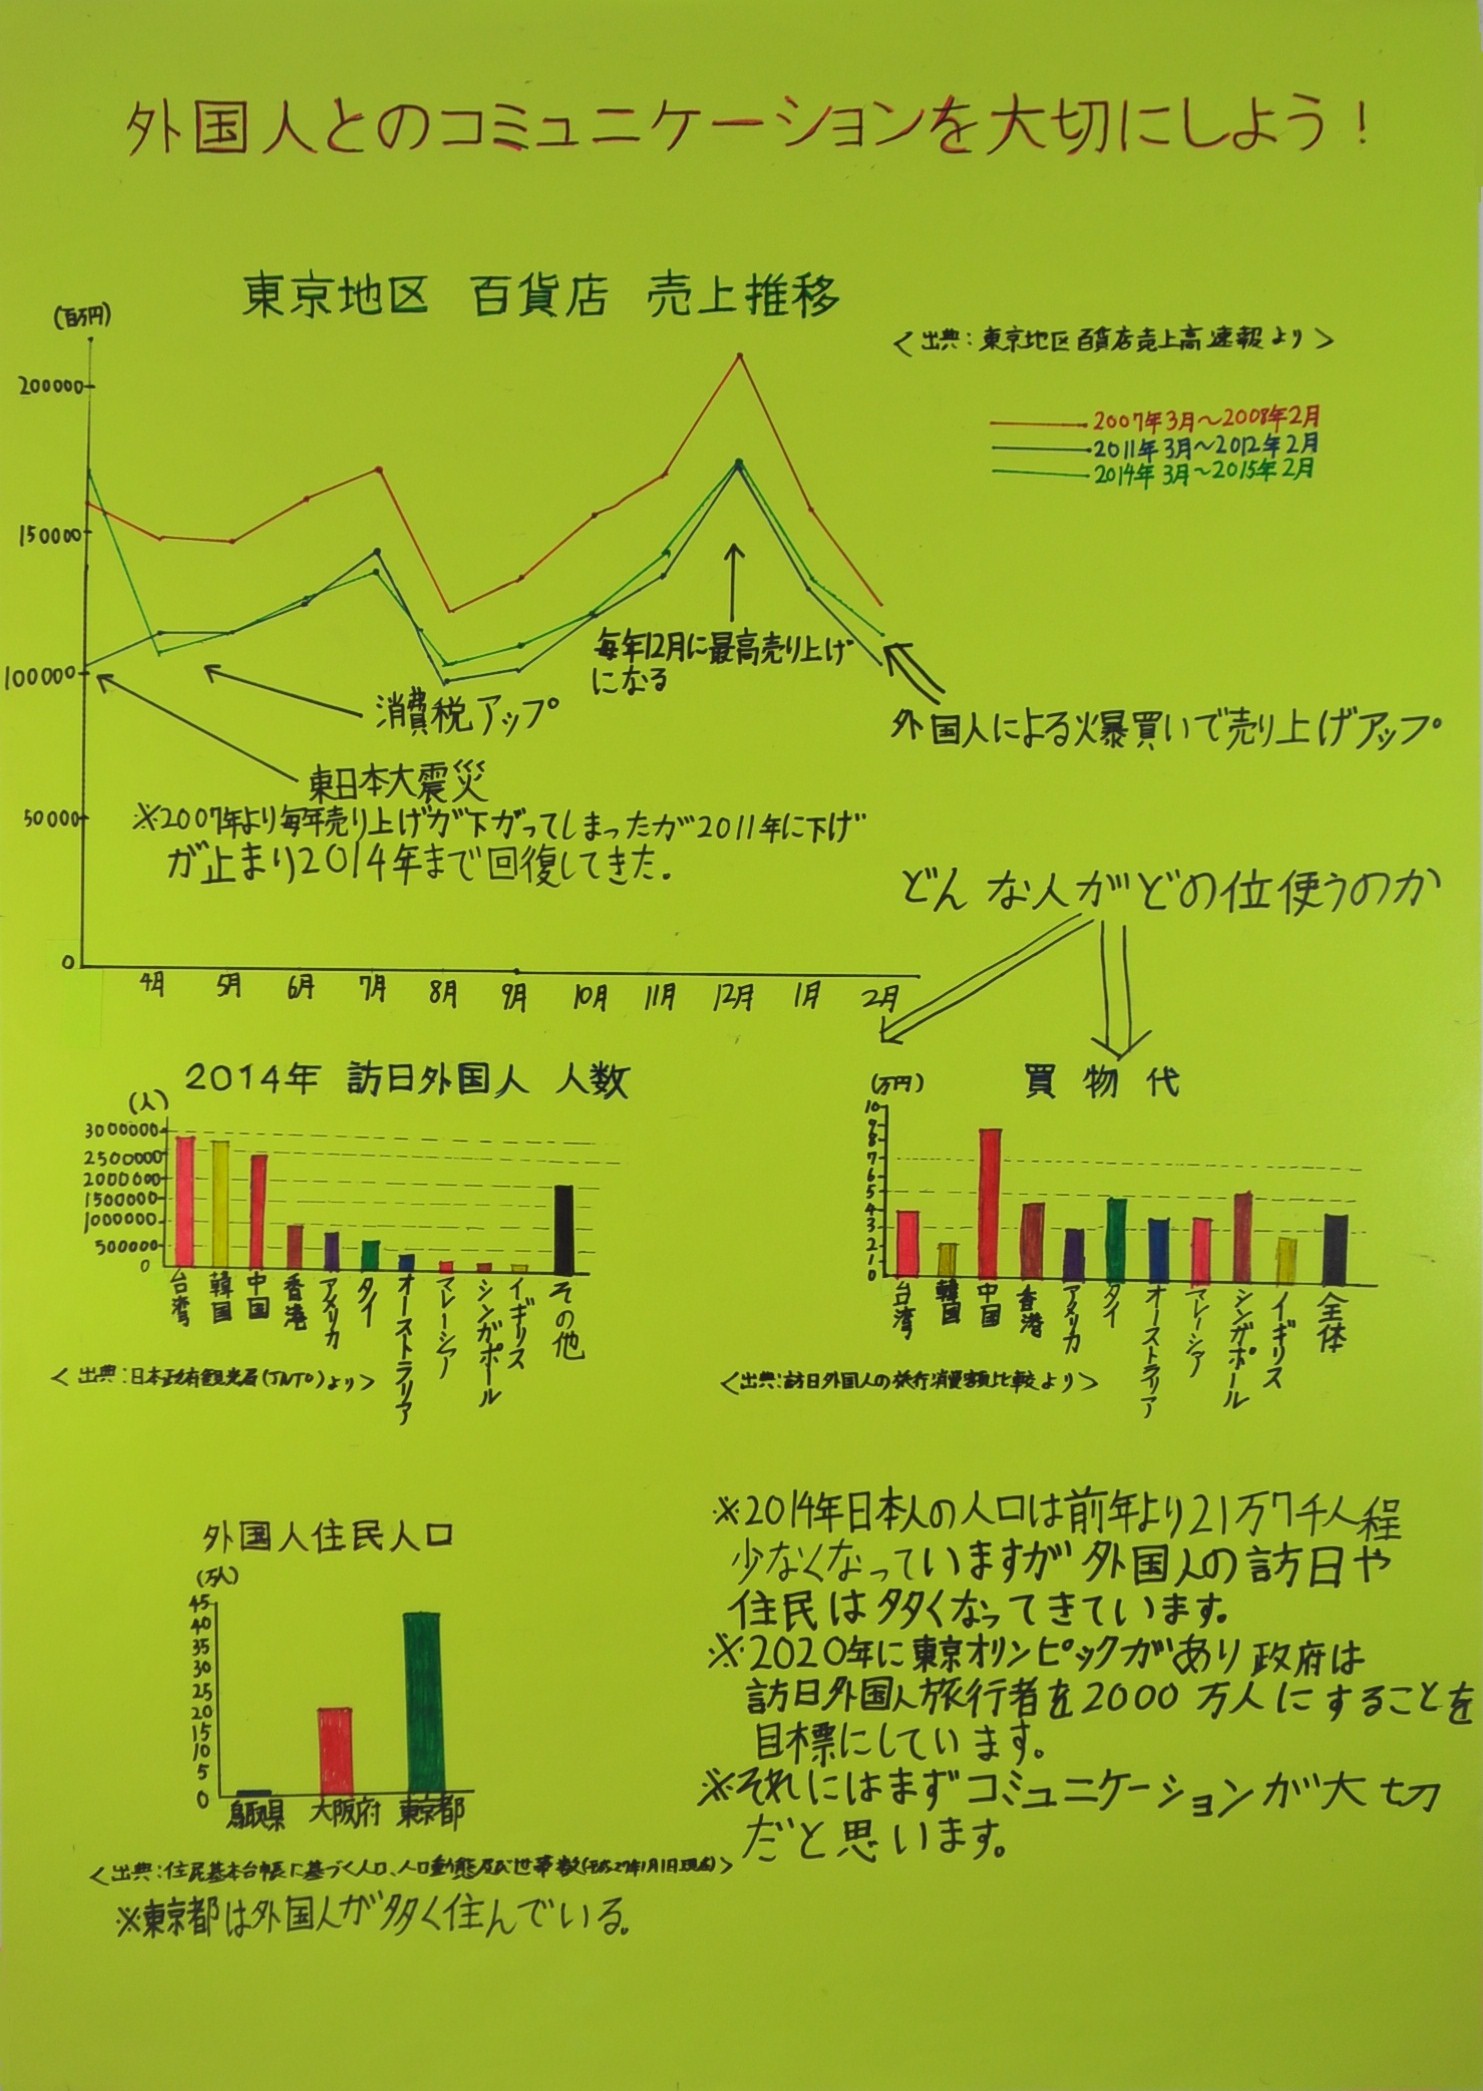 外国人とのコミュニケーションを大切にしよう!
東京地区 百貨店 売上推移
(百万円)
<出典:東京地区百貨店売上高速報より>
2007年3月~2008年2月
2011年3月~2012年2月
2014年3月~2015年2月
200000
150000
100000
50000
0
毎年12月に最高売り上げ
になる
消費税アップ
外国人による爆買いで売り上げアップ
東日本大震災
※2007年より毎年売り上げが下がってしまったが2011年に下げ
が止まり2014年まで回復してきた。
4月 5月 6月 7月 8月 9月 10月 11月 12月 1月 2月
どんな人がどの位使うのか
2014年 訪日外国人 人数
(人)
3000000
2500000
2000000
1500000
1000000
500000
0
台湾 韓国 中国 香港 アメリカ タイ オーストラリア マレーシア シンガポール イギリス その他
<出典:日本政府観光局(JNTO)より>
買物代
(万円)
10
9
8
7
6
5
4
3
2
1
0
台湾 韓国 中国 香港 アメリカ タイ オーストラリア マレーシア シンガポール イギリス 全体
<出典:訪日外国人の旅行消費額比較より>
外国人住民人口
(万人)
45
40
35
30
25
20
15
10
5
0
鳥取県 大阪府 東京都
<出典:住民基本台帳に基づく人口、人口動態及び世帯数(平成27年1月1日現在)>
※東京都は外国人が多く住んでいる。
※2014年日本人の人口は前年より21万7千人程
少なくなっていますが外国人の訪日や
住民は多くなってきています。
※2020年に東京オリンピックがあり政府は
訪日外国人旅行者を2000万人にすることを
目標にしています。
※それにはまずコミュニケーションが大切
だと思います。